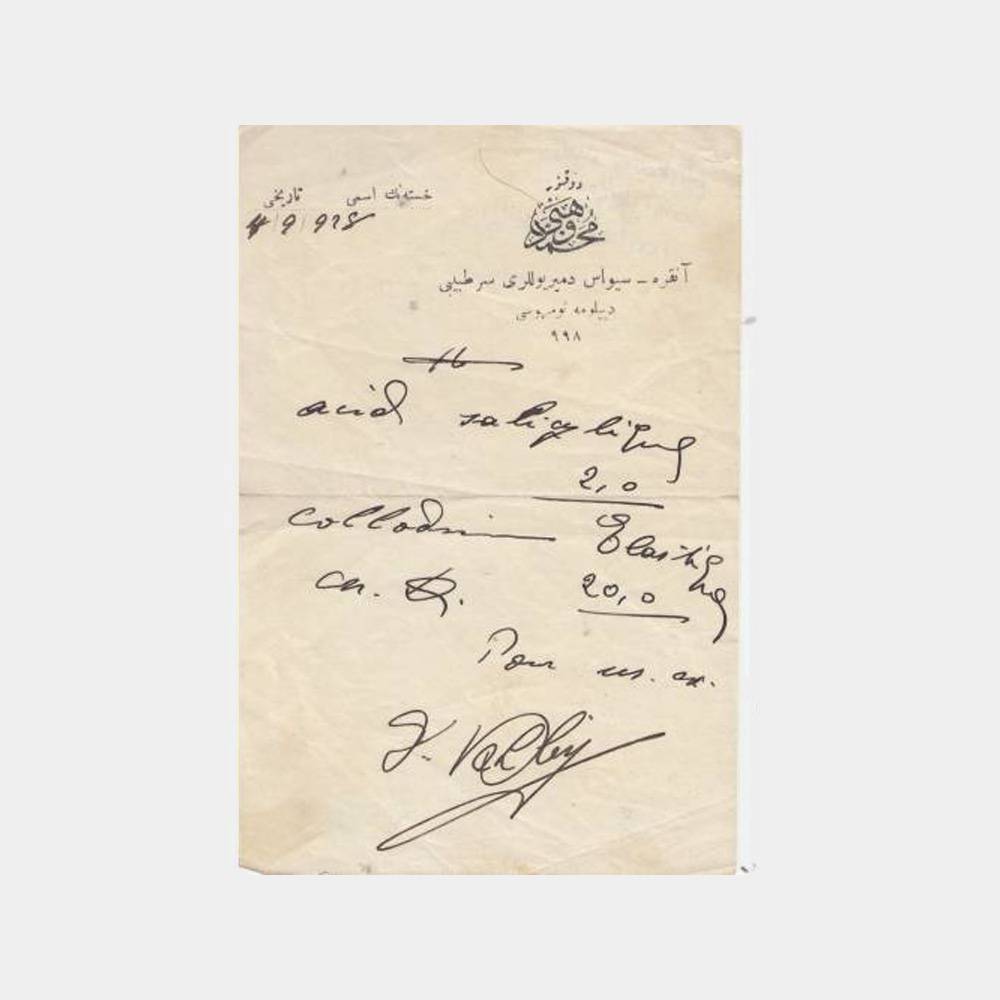 دوقتور
محمد وهبی
خسته‌نك اسمی تاریخی
4/9/928
آنقره ـ سیواس دمیریوللری سرطبیبی
دیپلومه نومروسی
۹۹۸
acid salicylique
2,0
collodion Elastique
20,0
Pour us. ex.